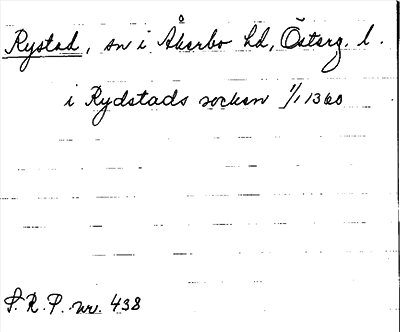 Rystad, sn i Åkerbo hd, Österg. l.
i Rydstads socken 1/1 1360
S. R. P. nr. 438